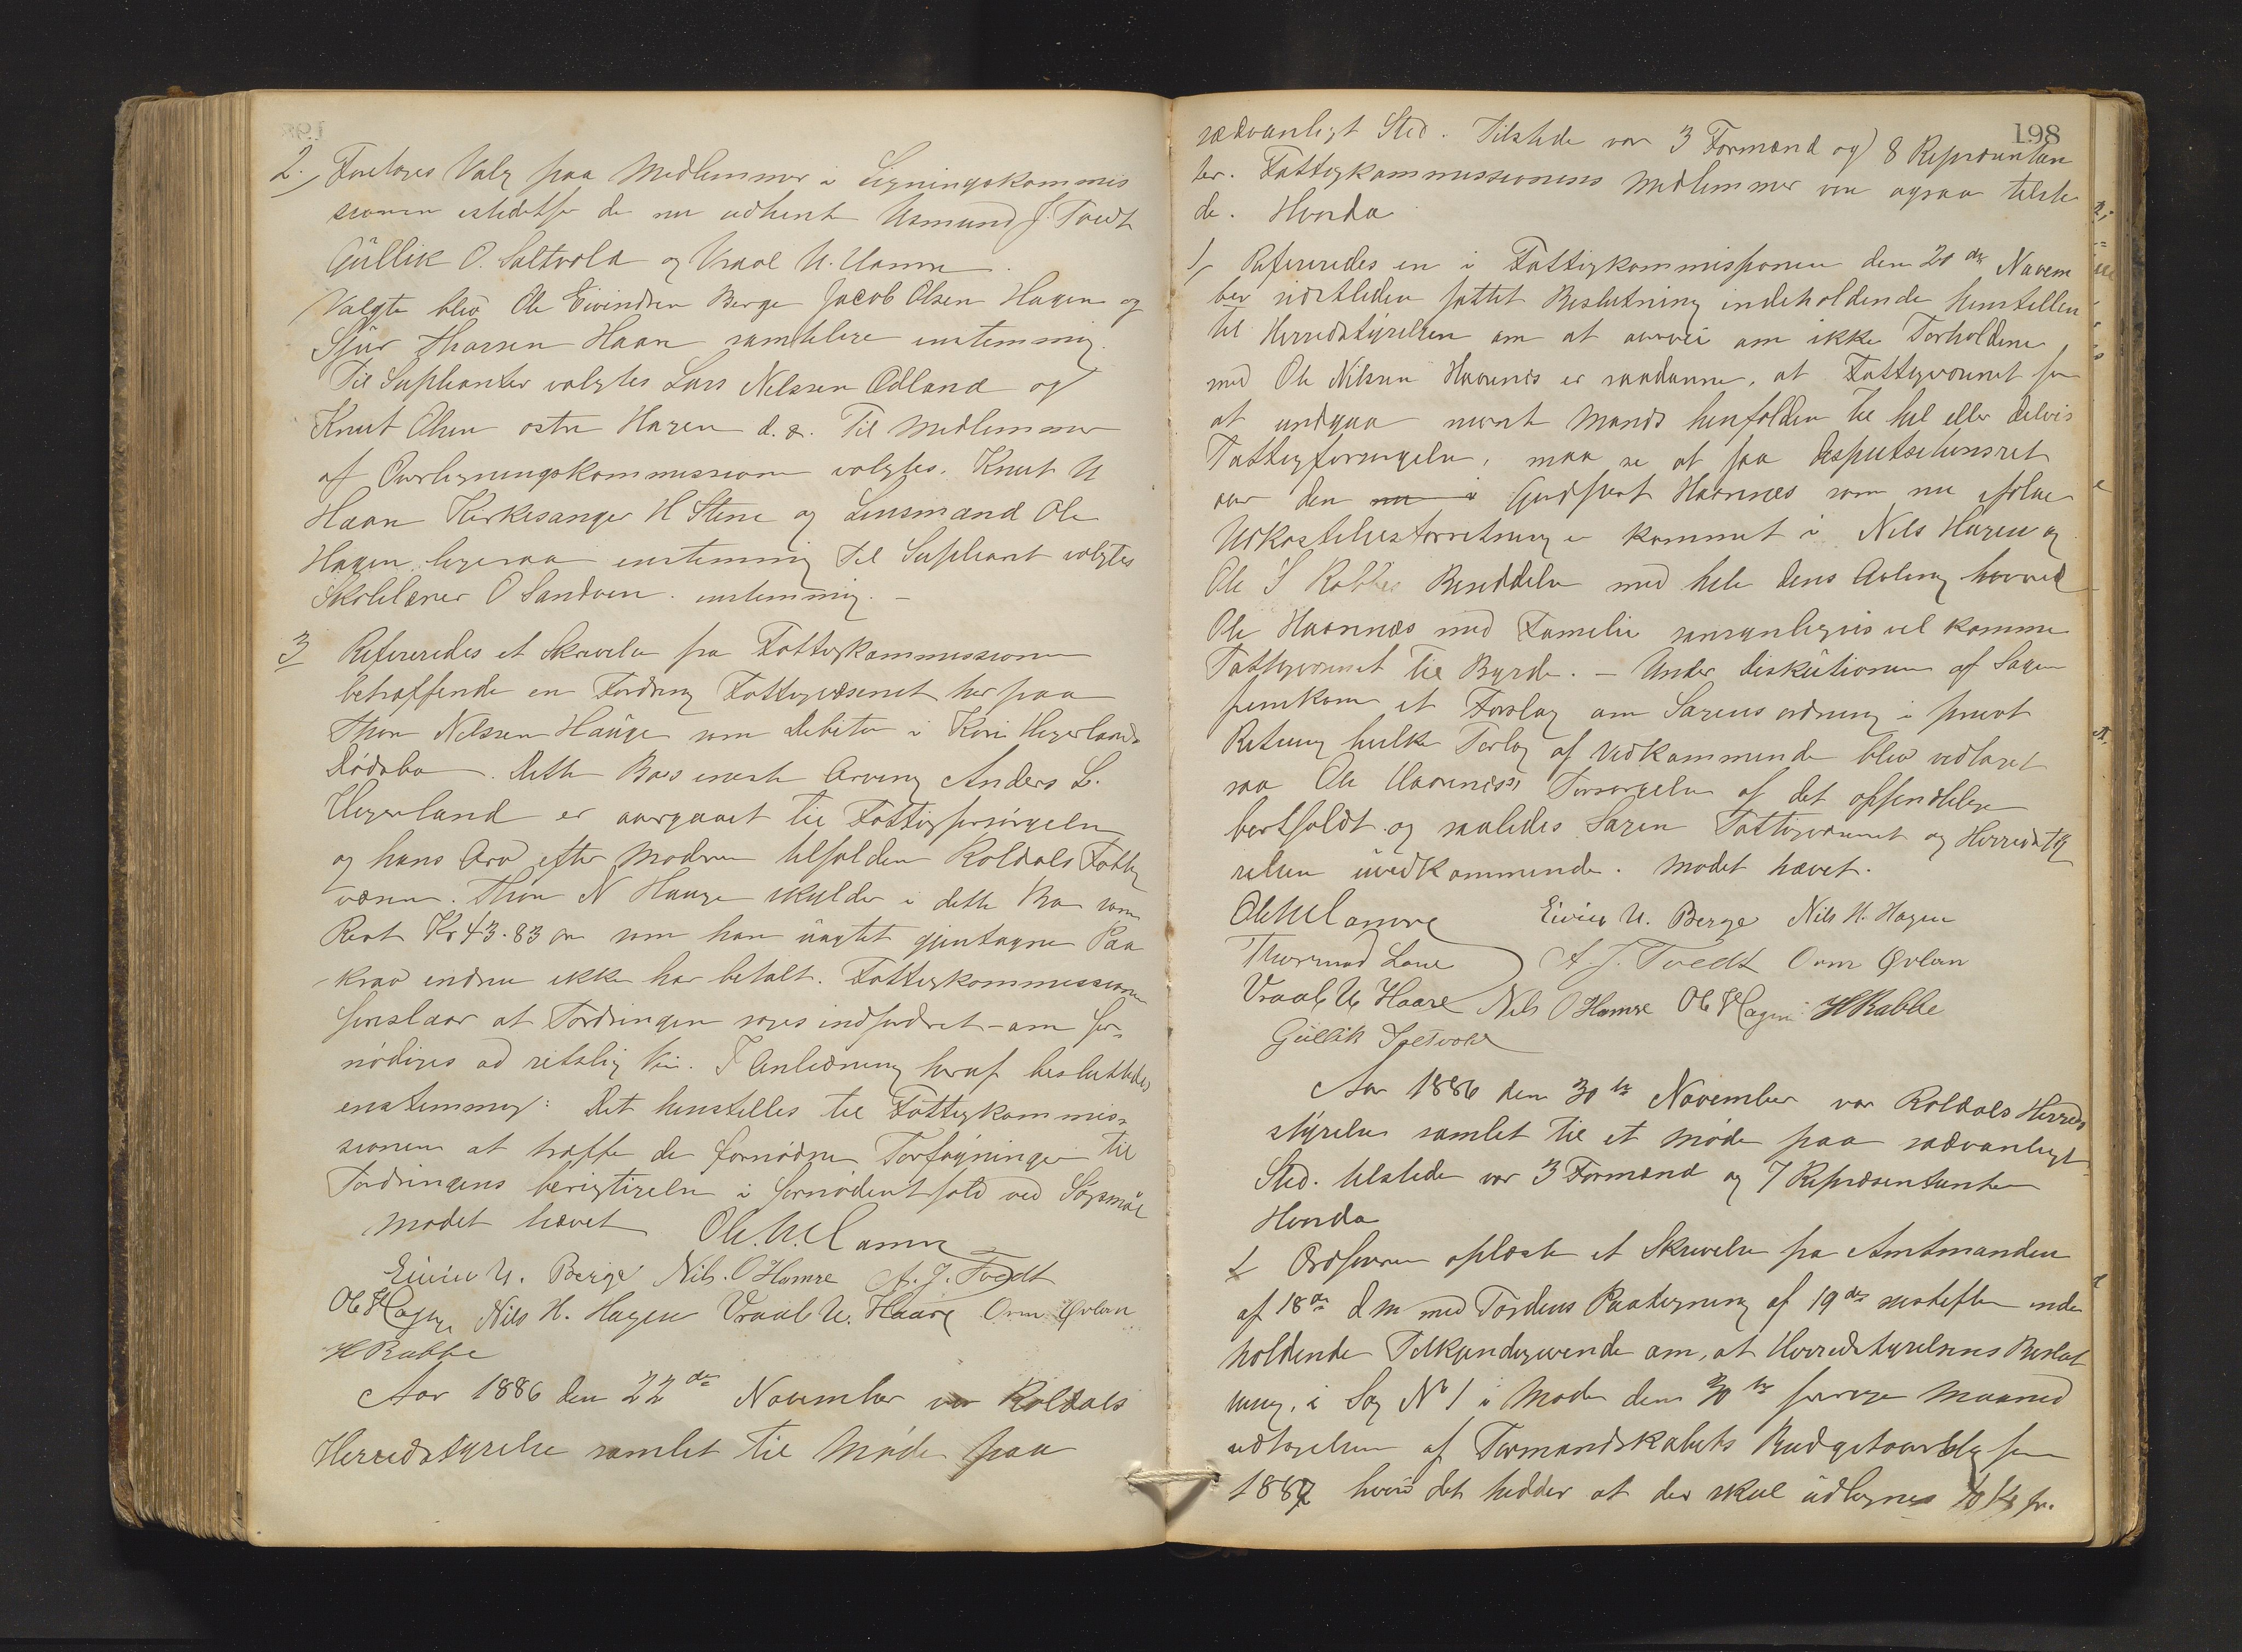 2. Foretoges Valg paa Medlemmer i Ligningskommis
sionen istedetfor de nu udtrædte Asmund J. Tvedt
Güllik O. Saltvold og Vraal U.
Valgte blev Ole Eivindsen Berge Jacob Olsen Hagen og
Sjur Thorsen Haan samtlige enstemmig.
Til Suplianter valgtes Lars Nilssen Odland og
Knut Olsen østre Hagen d. æ. Til Medlemmer
af Overligningskommissionen valgtes. Knut U
Haan Kirkesanger H Stene og Lensmand Ole
Hagen ligesaa enstemmig Til Supleant valgtes
Skolelærer O Sandven. enstemmig. –
3 Refereredes et Skrivelse fra Fattigkommissionen
betræffende en Fordring Fattigvæsenet har paa
Thor Nilssen Hauge som Debitor i Kari Hegerlands
Dødsbo. Dette Bos eneste Arving Anders L.
Hegerland er overgaaet til Fattigforsörgelse
og hans Arv efter Modren tilfalden Roldals Fattig
væsen. Thor N Hauge skylder i dette Bo som
Rest Kr 43.83 øre som han uagtet gjentagne Paa
krav endnu ikke har betalt. Fattigkommissionen
foreslaar at Fordringen søges indfordret – om for
nödiges ad retslig Vei. I Anledning heraf besluttedes
enstemmig: Det henstilles til Fattigkommis
sionen at træffe de fornødne Forføyninger til
Fordringens berigtigelse i fornødent fald ved Søgsmål
Mødet hævet Ole. U. Hamre
Eivin U. Berge Nils. O Hamre A. J. Tvedt
Ole Hagen Nils H. Hagen Vraal U. Haare Orm Øvlan
H Rabbe
Aar 1886 den 22den November var Roldals
Herredstyrelse samlet til Møde paa
198
sædvanligt Sted. Tilstede var 3 Formænd og 8 Repræsentan
ter. Fattigkommissionens Medlemmer var ogsaa tilste
de. Hvorda
1 Refereredes en i Fattigkommissionen den 20de Novem
ber sidstleden fattet Beslutning indeholdende henstillen
til Herredstyrelsen om at overvei om ikke Forholdene
med Ole Nilsen Haarenes er saadanne, at Fattigvæsenet for
at undgaa nævnte Mands henfalden til hel eller delvis
Fattigforsørgelse, maa se at faa
over den Haarenes som nu ifølge
Udkastelsesforretning er kommet i Nils Hagen og
Ole S Rabbes Besiddelse med hele dens Avling hvorved
Ole Haarenes med Familie sansynligvis vil komme
Fattigvæsenet til Byrde. – Under Diskutionen af Sagen
fremkom et Forslag om Sagens ordning i privat
Retning hvilke Forlag af Vedkommende blev vedtaget
saa Ole Haarenes's Forsørgelse af det offentlige
bortfaldt og saaledes Sagen Fattigvæsenet og Herredsty
relsen uvedkommende. Mødet hævet.
Ole U Hamre Eivin U. Berge Nils H. Hagen
Thormod Lone A. J. Tvedt Orm Øvlan
Vraal U Haare Nils O Hamre Ole Hagen H Rabbe
Gullik Saltvold
Aar 1886 den 30te November var Roldals Herreds
styrelse samlet til et Møde paa sædvanligt
Sted. tilstede var 3 Formænd og 7 Repræsentanter
Hvorda
1 Ordføreren oplæste et Skrivelse fra Amtmanden
af 18de d m med Fogdens Paategning af 19de næstefter inde
holdende Tilkjendegivende om, at Herredstyrelsens Beslut
ning, i Sag No 1 i Møde den 30te forrige Maaned
vedtagelsen af Formandskabets Budgetoverslag for
1887 hvori det hedder at der skal üdlignes